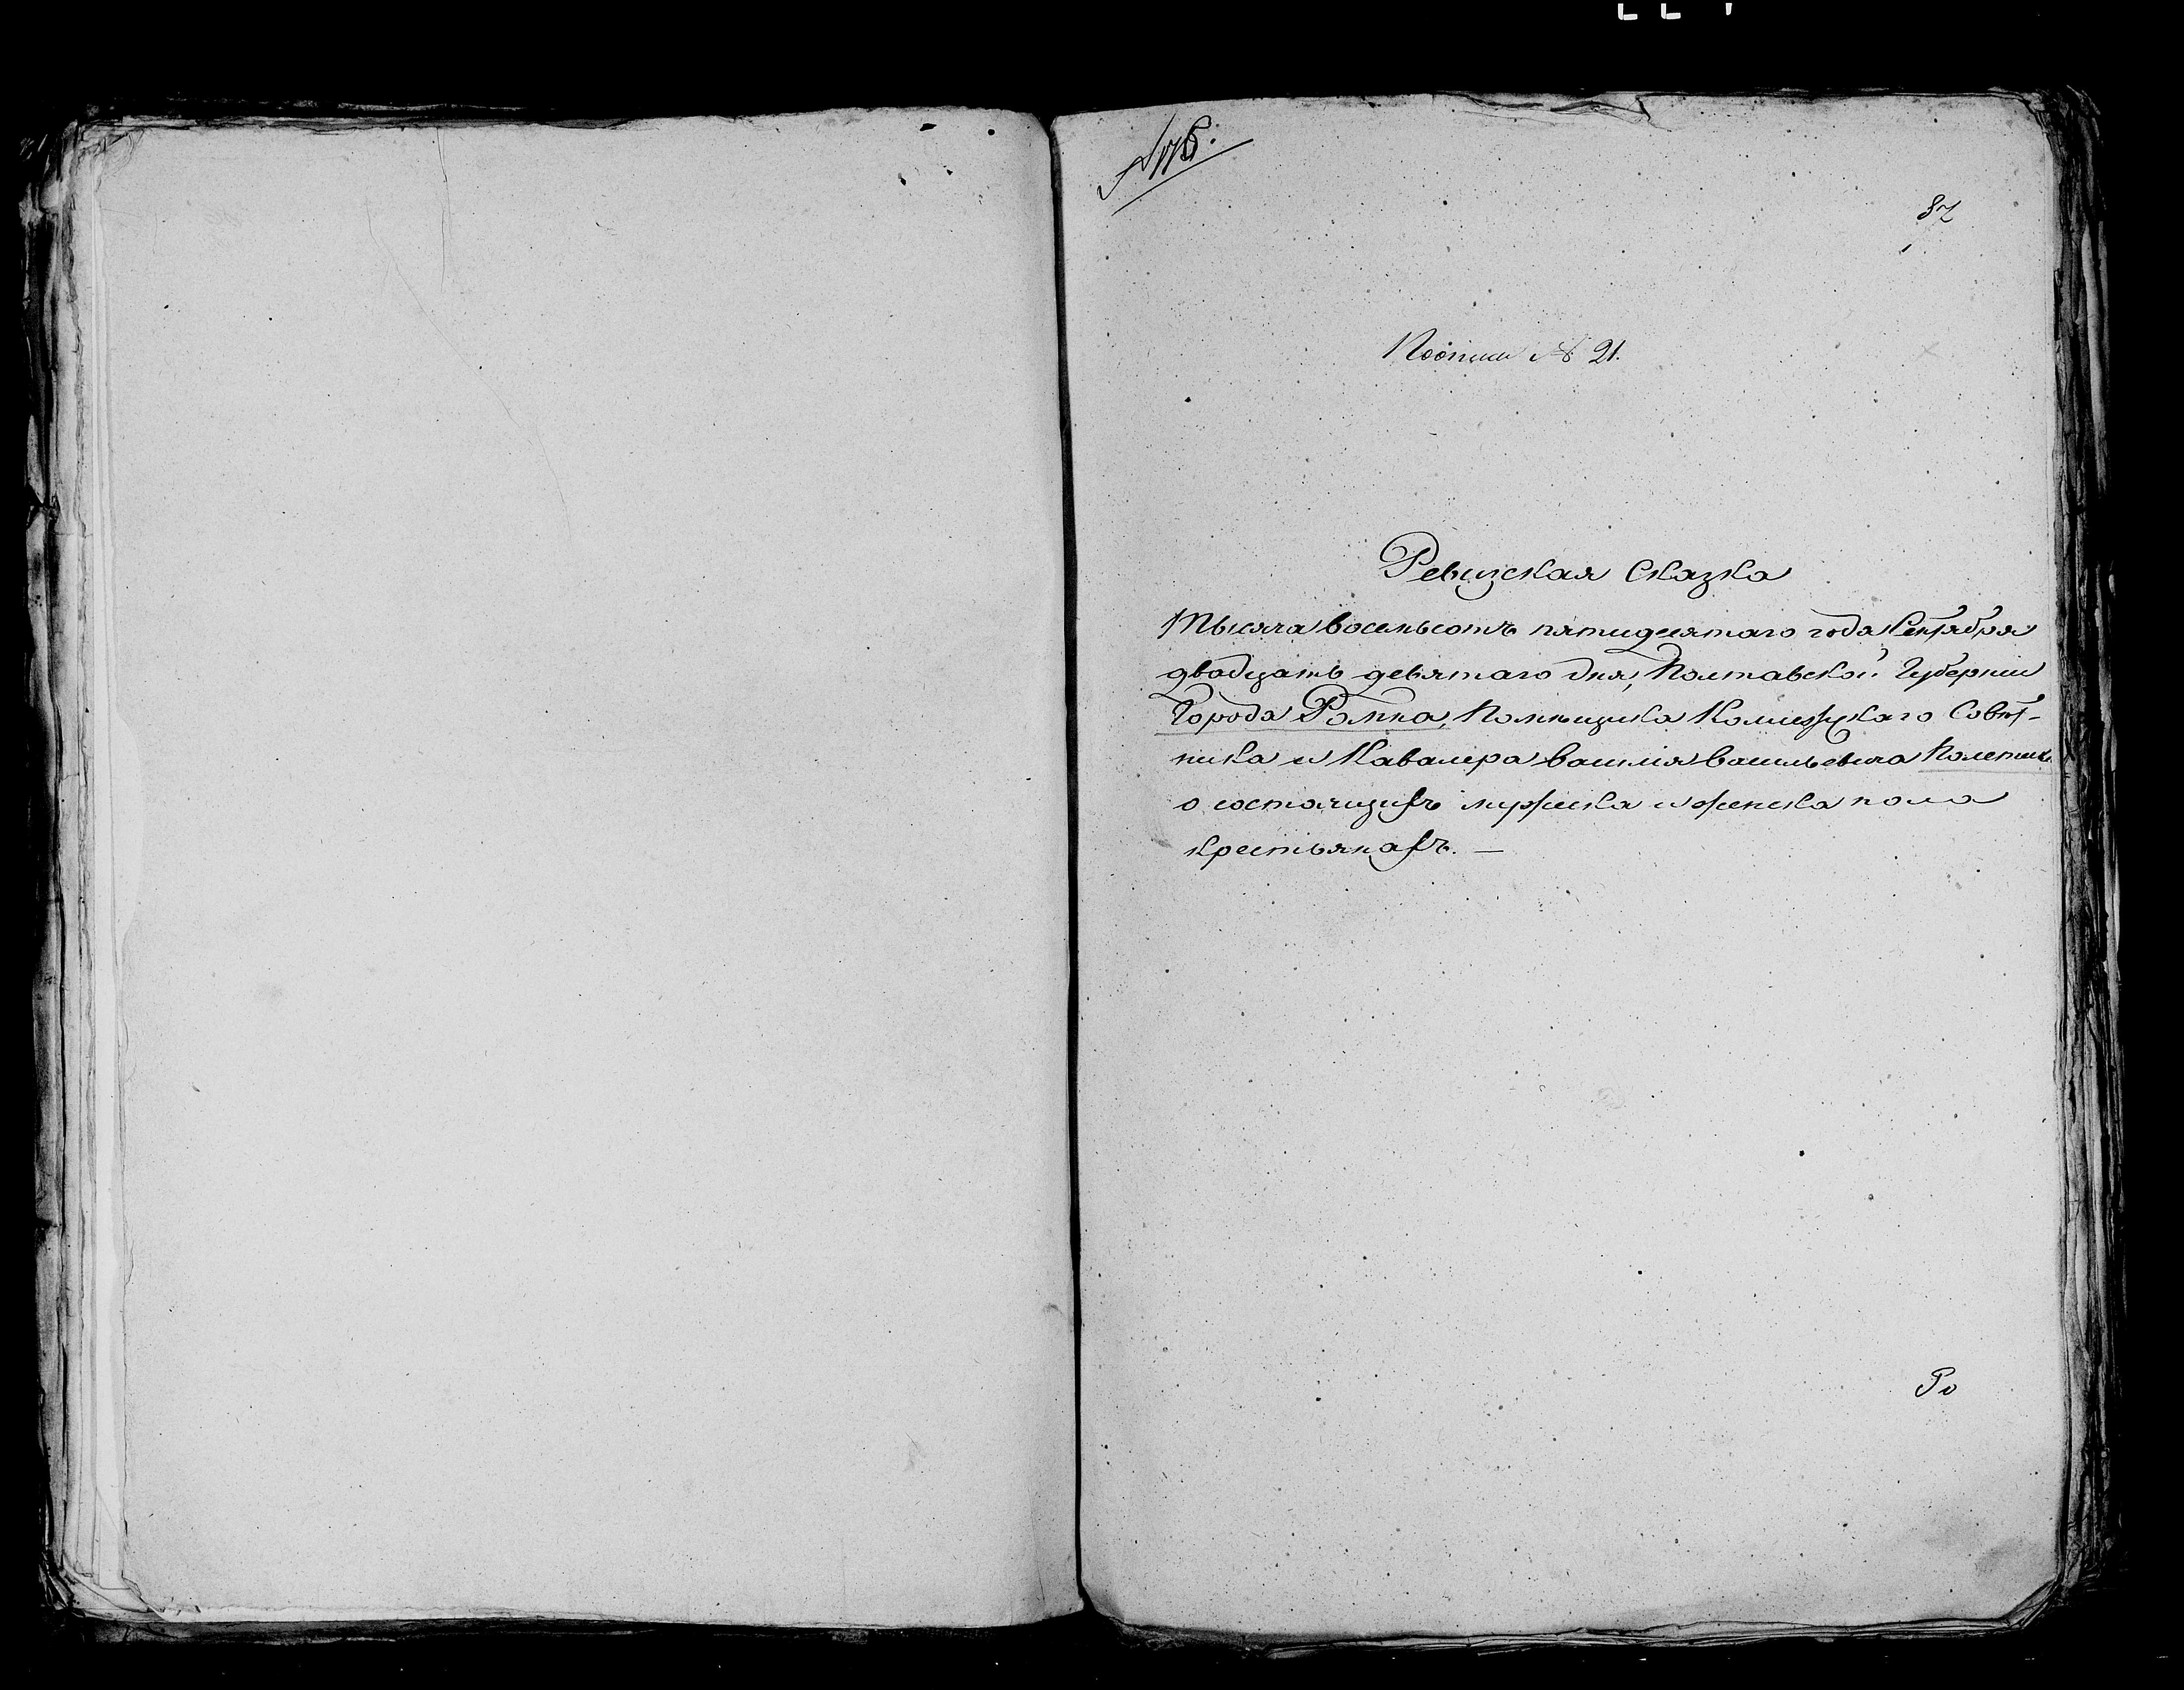 № 176.
87
По описи № 21.
Ревизская Сказка
Тысяча восемьсотъ пятидесятаго года Сентября
двадцать девятаго дня, Полтавской Губерніи
Города Ромна, Помѣщика Коллежскаго Совѣт-
ника и Кавалера Василія Васильевича Полетики
о состоящихъ мужеска и женска пола
крестьянахъ. —